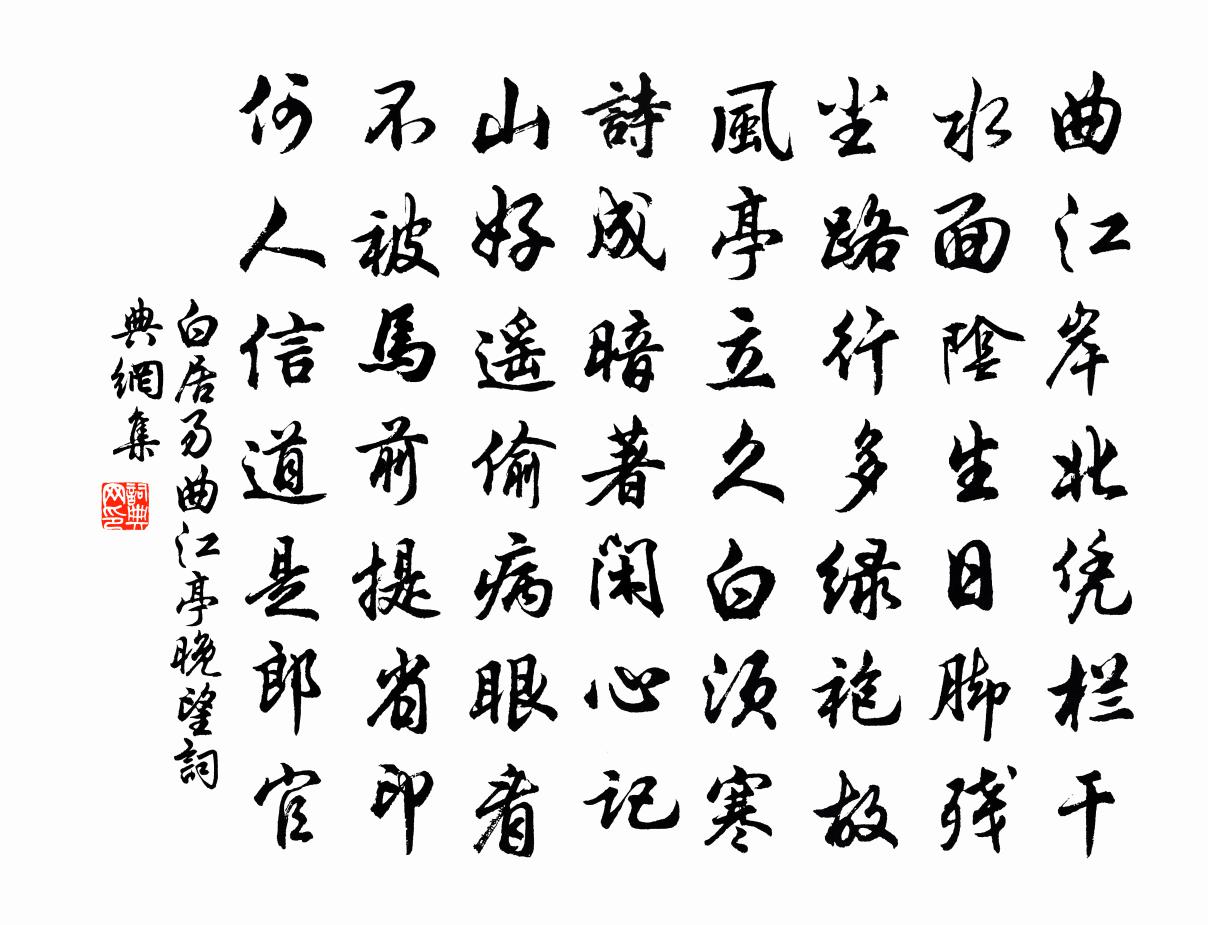 曲江岸北凭栏干
水面阴生日脚残
尘路行多绿袍故
風亭立久白须寒
詩成暗著闲心记
山好遥偷病眼看
不被馬前提省印
何人信道是郎官
白居易曲江亭晚望詞
典網集
詞典网印